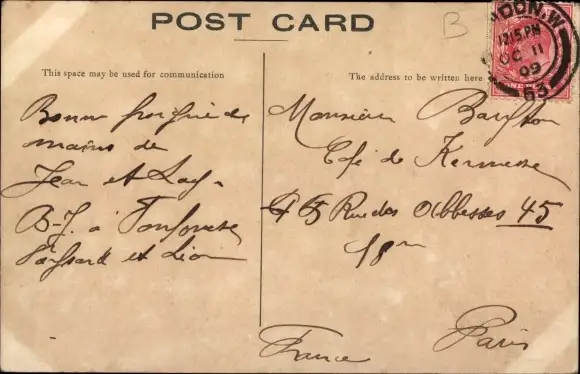 POST CARD
B
LONDON.W.
12.15 PM
OC 11
09
63
This space may be used for communication
The address to be written here
Bonne
mains de
Jean et
B-J. à
et Lion
Monsieur
Café de Kermesse
45 Rue des Abbesses 45
18
Paris
France